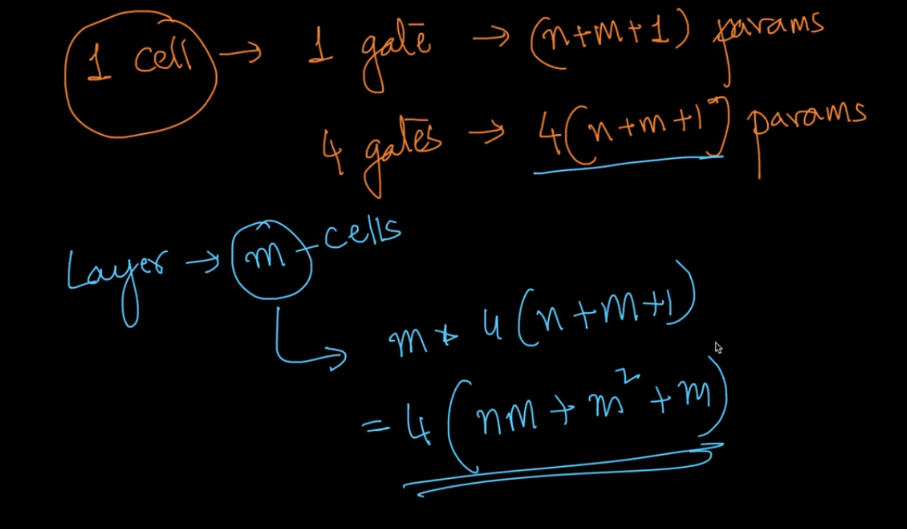 1 cell → 1 gate → (n+m+1) params
4 gates → 4(n+m+1) params
Layer → m - cells
m * 4(n+m+1)
= 4(nm + m² + m)